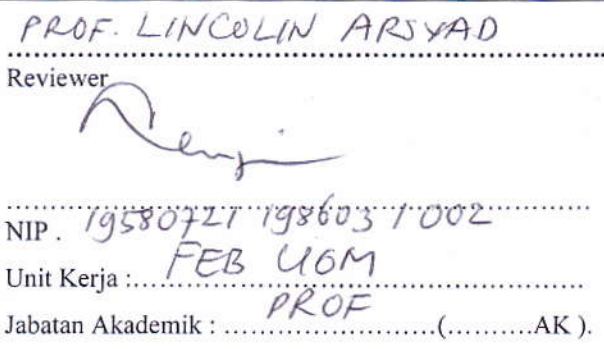 PROF. LINCOLIN ARSYAD
Reviewer
NIP . 19580721 198603 1 002
Unit Kerja : FEB UGM
Jabatan Akademik : PROF (..........AK ).